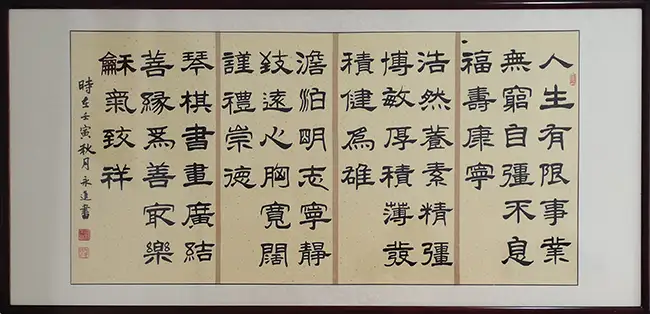 人生有限事業
無窮自彊不息
福壽康寧
浩然養素精彊
博敏厚積薄發
積健為雄
澹泊明志寧靜
致遠心胸寬闊
謹禮崇德
琴棋書畫廣結
善緣為善最樂
龢氣致祥
時在壬寅秋月永進書